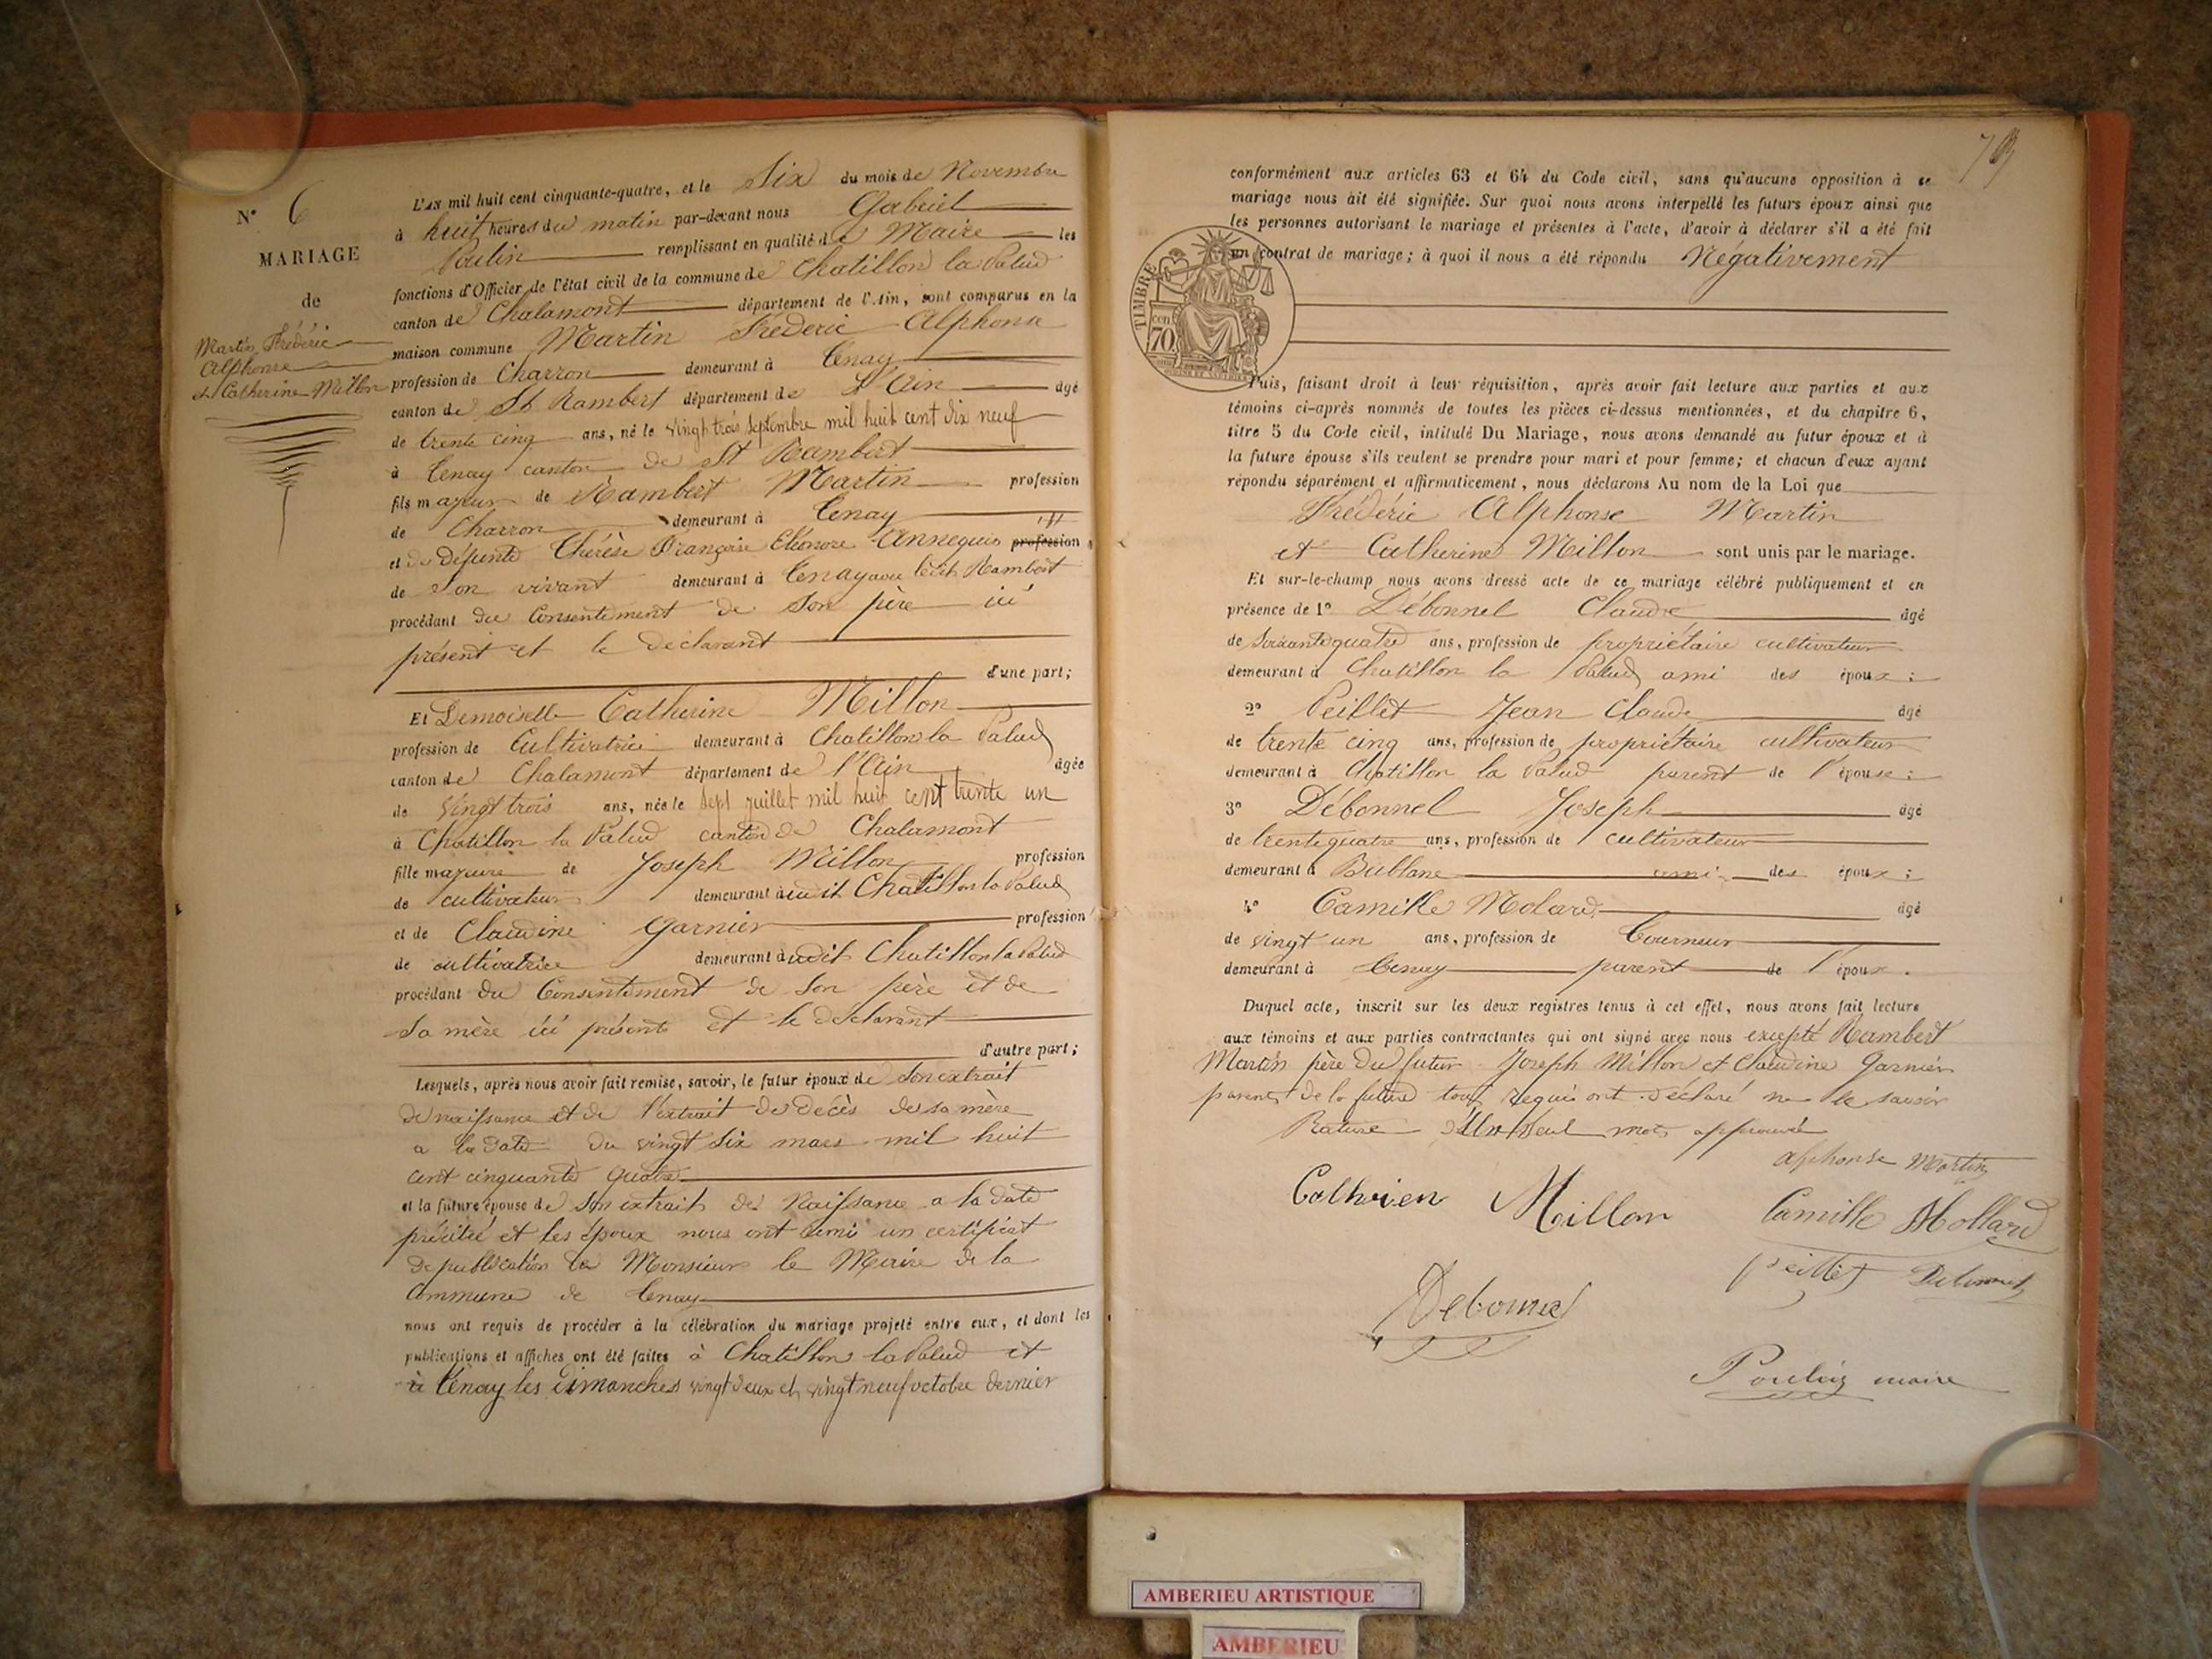 N° 6
MARIAGE
de
Martin Frédéric
Alphonse
et Catherine Millon
L'AN mil huit cent cinquante-quatre, et le Six du mois de Novembre
à huit heures du matin par-devant nous Gabriel
Poulin remplissant en qualité de Maire les
fonctions d'Officier de l'état civil de la commune de Chatillon la Palud
canton de Chalamont département de l'Ain, sont comparus en la
maison commune Martin Frédéric Alphonse
profession de Charron demeurant à Tenay
canton de St Rambert département de L'Ain âgé
de trente cinq ans, né le vingt trois septembre mil huit cent dix neuf
à Tenay canton de St Rambert
fils majeur de Rambert Martin profession
de Charron demeurant à Tenay
et de Défunte Thérèse Françoise Eléonore Annequin profession
de Son vivant demeurant à Tenay avec ledit Rambert
procédant du Consentement de Son père ici
présent et le déclarant
d'une part;
Et Demoiselle Catherine Millon
profession de Cultivatrice demeurant à Chatillon la Palud
canton de Chalamont département de l'Ain âgée
de vingt trois ans, née le sept juillet mil huit cent trente un
à Chatillon la Palud canton de Chalamont
fille majeure de Joseph Millon profession
de cultivateur demeurant audit Chatillon la Palud
et de Claudine Garnier profession
de cultivatrice demeurant audit Chatillon la Palud
procédant du Consentement de Son père et de
Sa mère ici présents et le déclarant
d'autre part;
Lesquels, après nous avoir fait remise, savoir, le futur époux de Son extrait
de naissance et de l'extrait de décès de sa mère
a la date du vingt six mars mil huit
cent cinquante quatre
et la future épouse de Son extrait de Naissance a la date
précitée et les époux nous ont remi un certificat
de publication de Monsieur le Maire de la
Commune de Tenay
nous ont requis de procéder à la célébration du mariage projeté entre eux, et dont les
publications et affiches ont été faites à Chatillon la Palud et
à Tenay les Dimanches vingt deux et vingt neuf octobre dernier
conformément aux articles 63 et 64 du Code civil, sans qu'aucune opposition à ce
mariage nous ait été signifiée. Sur quoi nous avons interpellé les futurs époux ainsi que
les personnes autorisant le mariage et présentes à l'acte, d'avoir à déclarer s'il a été fait
un contrat de mariage; à quoi il nous a été répondu Négativement
TIMBRE
cen.
70
Puis, faisant droit à leur réquisition, après avoir fait lecture aux parties et aux
témoins ci-après nommés de toutes les pièces ci-dessus mentionnées, et du chapitre 6,
titre 5 du Code civil, intitulé Du Mariage, nous avons demandé au futur époux et à
la future épouse s'ils veulent se prendre pour mari et pour femme; et chacun d'eux ayant
répondu séparément et affirmativement, nous déclarons Au nom de la Loi que
Frédéric Alphonse Martin
et Catherine Millon sont unis par le mariage.
Et sur-le-champ nous avons dressé acte de ce mariage célébré publiquement et en
présence de 1° Débonnel Claude âgé
de Soixante quatre ans, profession de propriétaire cultivateur
demeurant à Chatillon la Palud ami des époux;
2° Peillet Jean Claude âgé
de trente cinq ans, profession de propriétaire cultivateur
demeurant à Chatillon la Palud parent de l'épouse;
3° Débonnel Joseph âgé
de trente quatre ans, profession de cultivateur
demeurant à Bublane ami des époux;
4° Camille Molard âgé
de vingt un ans, profession de Tourneur
demeurant à Tenay parent de l'époux.
Duquel acte, inscrit sur les deux registres tenus à cet effet, nous avons fait lecture
aux témoins et aux parties contractantes qui ont signé avec nous excepté Rambert
Martin père du futur Joseph Millon et Claudine Garnier
parents de la future tous requis ont déclaré ne le savoir
Rature d'Un Seul mot approuvée
alphonse Martin
Cathrien Millon Camille Mollard
peillet Debonnel
Debonnel
Poulin maire
AMBERIEU ARTISTIQUE
AMBERIEU